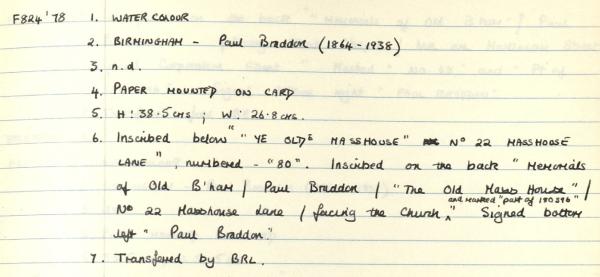 F824'78 1. WATER COLOUR
2. BIRMINGHAM - Paul Braddon (1864-1938)
3. n.d.
4. PAPER MOUNTED ON CARD
5. H: 38.5 cms ; W: 26.8 cms.
6. Inscribed below "YE OLDE MASSHOUSE" No 22 MASSHOUSE
LANE", numbered - "80". Inscribed on the back "Memorials
of Old B'ham / Paul Braddon / "The Old Mass House" /
and marked "part of 180596"
No 22 Masshouse Lane / facing the Church ^ " Signed bottom
left "Paul Braddon."
7. Transferred by BRL.